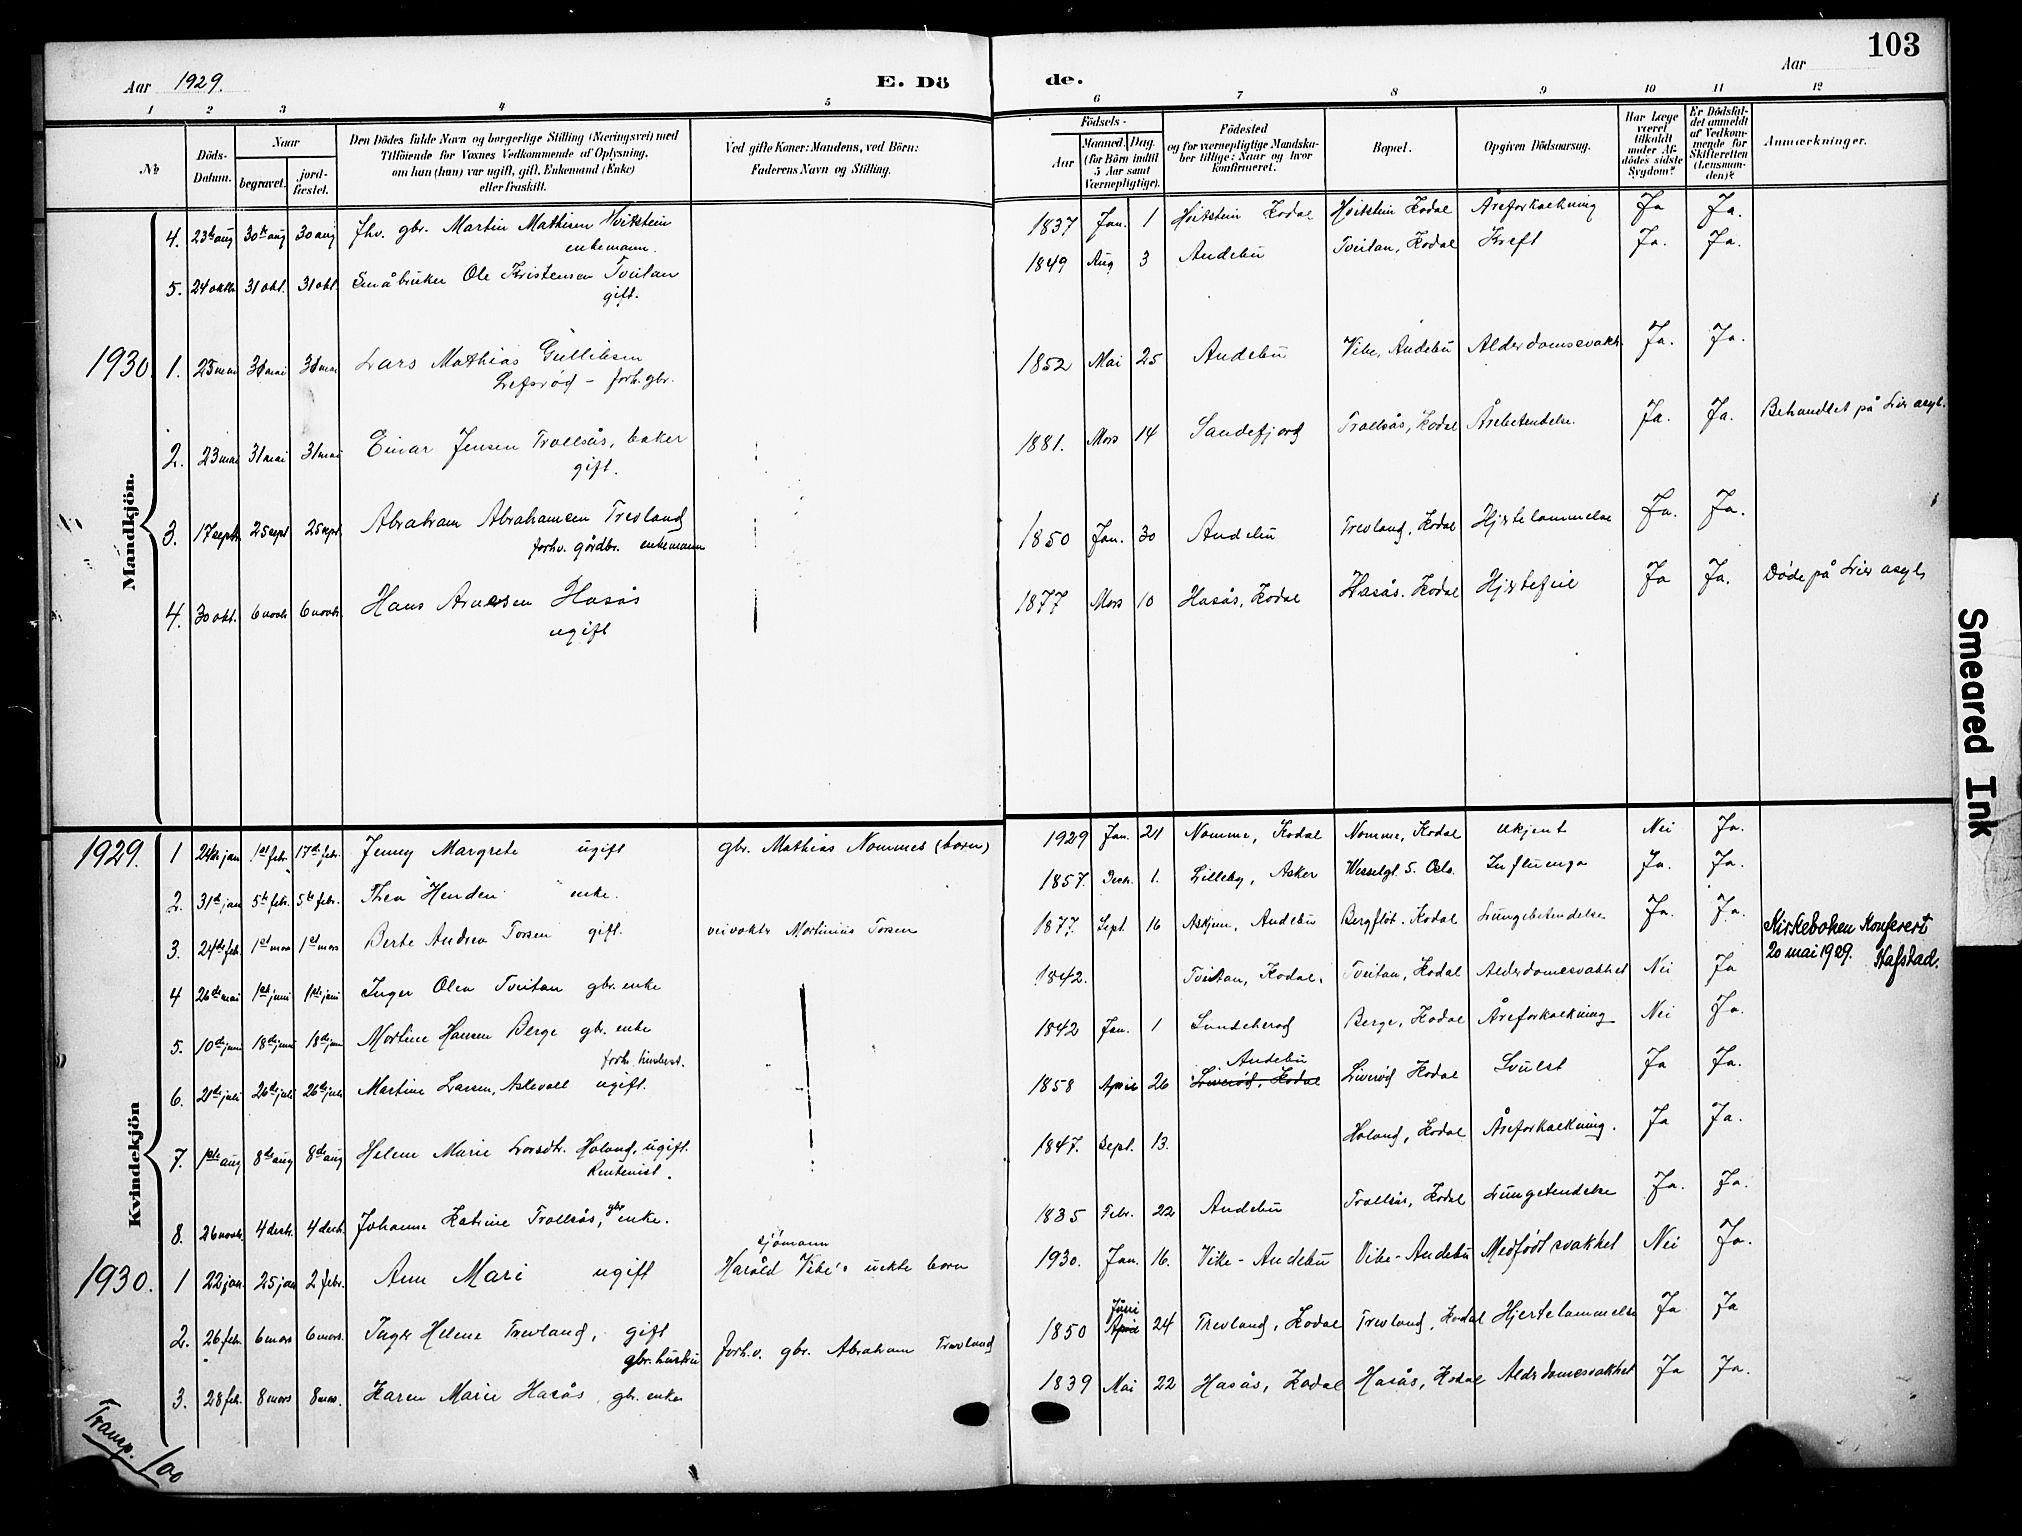 103
Aar 1929. E. Dö de. Aar
1 2 3 4 5 6 7 8 9 10 11 12
No
Döds-Datum.
Naar
begravet.
jord-fæstet.
Den Dödes fulde Navn og borgerlige Stilling (Næringsvei) med
Tilföiende for Voxnes Vedkommende af Oplysning,
om han (hun) var ugift, gift, Enkemand (Enke)
eller fraskilt.
Ved gifte Koner: Mandens, ved Börn:
Faderens Navn og Stilling.
Födsels-
Aar
Maaned. Dag.
(for Börn indtil
5 Aar samt
Værnepligtige).
Födested
og for værnepligtige Mandska-
ber tillige: Naar og hvor
konfirmeret.
Bopæl.
Opgiven Dödsaarsag.
Har Læge
været
tilkaldt
under Af-
dödes sidste
Sygdom?
Er Dödsfal-
det anmeldt
af Vedkom-
mende for
Skifteretten
(Lensman-
den)?
Anmærkninger.
Mandkjön.
4. 23de aug 30te aug 30 aug fhv. gbr. Martin Mathisen Hvitstein 1837 Jan. 1 Hvitstein Kodal Hvitstein Kodal Åreforkalkning Ja Ja.
enkemann.
5. 24 oktbr 31 okt. 31 okt. Småbruker Ole Kristensen Tveitan 1849 Aug 3 Andebu Tveitan, Kodal Kreft Ja. Ja.
gift.
1930. 1. 25 mai 31 mai 31 mai Lars Mathias Gulliksen 1852 Mai 25 Andebu Vike, Andebu Alderdomssvakh. Ja. Ja.
Lefsrød - forh. gbr.
2. 23 mai 31 mai 31 mai Einar Jensen Trollsås, baker 1881. Mars 14 Sandefjord Trollsås, Kodal Årebetendelse. Ja. Ja. Behandlet på Lier asyl.
gift.
3. 17 septbr 25 sept 25 sept. Abraham Abrahamsen Trevland 1850 Jan. 30 Andebu Trevland, Kodal Hjertelammelse Ja. Ja.
forhv. gårdbr. enkemann
4. 30 okt. 6 novbr 6 novbr. Hans Arnesen Hasås 1877 Mars 10 Hasås, Kodal Hasås. Kodal Hjertefeil Ja Ja. Døde på Lier asyl,
ugift
Kvindekjön
1929. 1 24de jan 1st febr. 17de febr. Jenny Margrete ugift gbr. Mathias Nommes (barn) 1929 Jan. 21 Nomme, Kodal Nomme, Kodal ukjent Nei Ja.
2. 31te jan 5te febr. 5te febr. Thea Henden enke. 1857. Decbr. 1. Lilleby, Asker Wesselgt. 5. Oslo. Influenza Ja. Ja.
3. 24de feb. 1st mars 1st mars Berte Andrea Torsen gift. veivokter Martinius Torsen 1877. Sept. 16 Askjem, Andebu Bergfløt. Kodal Lungebetendelse Ja. Ja.
Kirkeboken konferert
20 mai 1929. Hafstad.
4 26de mai 1st juni 1ste juni Inger Olea Tveitan gbr. enke 1842. Tveitan, Kodal. Tveitan, Kodal Alderdomssvakhet Nei Ja
5. 10de juni 18de juni 18de juni Martine Hansen Berge gbr. enke 1842 Jan. 1 Sundeherad Berge, Kodal Åreforkalkning Nei Ja.
6. 21de juli 26de juli 26de juli Martine Larsen, Aslevoll ugift. 1858 April 26 Liverød, Kodal Andebu Liverød Kodal Svulst Ja Ja.
7. 1ste aug 8de aug 8de aug Helene Marie Larsdtr. Holand, ugift. 1847. Sept. 13. Holand, Kodal Åreforkalkning. Ja Ja.
Rentenist.
8. 26 novbr. 4 decbr. 4 decbr. Johanne Katrine Trollsås, gbr enke. 1835 Febr. 22 Andebu Trollsås, Kodal Lungetendelse Ja. Ja.
1930. 1 22 jan. 25 jan 2 febr. Ann Mari ugift sjömann
Harald Vike's uekte barn 1930. Jan. 16. Vike - Andebu Vike - Andebu Medfödt svakhet Nei Ja.
2. 26 febr. 6 mars 6 mars. Inger Helene Trevland, gift forh.v. gbr. Abraham Trevland 1850 April Juni 24 Trevland, Kodal Trevland, Kodal Hjertelammelse Ja Ja
gbr. hustru
3. 28 feb. 8 mars 8 mars. Karen Marie Hasås, gbr. enke 1839 Mai 22 Hasås, Kodal Hasås, Kodal Alderdomssvakhet Ja Ja.
Transp. 100
Smeared Ink